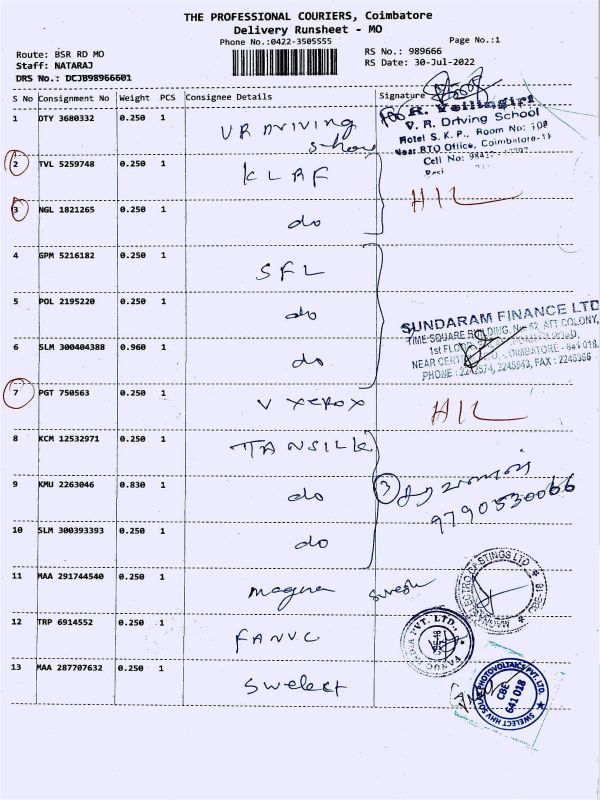 THE PROFESSIONAL COURIERS, Coimbatore
Delivery Runsheet - MO
Phone No.:0422-3505555
Page No.:1
Route: BSR RD MO
RS No.: 989666
Staff: NATARAJ
RS Date: 30-Jul-2022
DRS No.: DCJB98966601
S No Consignment No Weight PCS Consignee Details Signature
1 DTY 3680332 0.250 1 VR Driving
R. Vellingiri
V. R. Driving School
Hotel S. K. P., Room No: 108
Near RTO Office, Coimbatore-18
Cell No:
2 TVL 5259748 0.250 1 KLRF
HIL
3 NGL 1821265 0.250 1 do
4 GPM 5216182 0.250 1 SFL
5 POL 2195220 0.250 1 do
SUNDARAM FINANCE LTD
TIME SQUARE BUILDING, No: 62, ATT COLONY,
1st FLOOR
6 SLM 300404388 0.960 1 do
NEAR COIMBATORE - 641 018.
PHONE : 2243574, 2245843, FAX :
7 PGT 750563 0.250 1 V XEROX HIL
8 KCM 12532971 0.250 1 TANSILK
9 KMU 2263046 0.830 1 do 3
9790530066
10 SLM 300393393 0.250 1 do
11 MAA 291744540 0.250 1 magna
MAGNA ELECTRO CASTINGS LTD
12 TRP 6914552 0.250 1 FANUC
FANUC INDIA PVT. LTD.,
13 MAA 287707632 0.250 1 Swelect
SWELECT HHV SOLAR PHOTOVOLTAICS PVT. LTD.
CBE
641 018